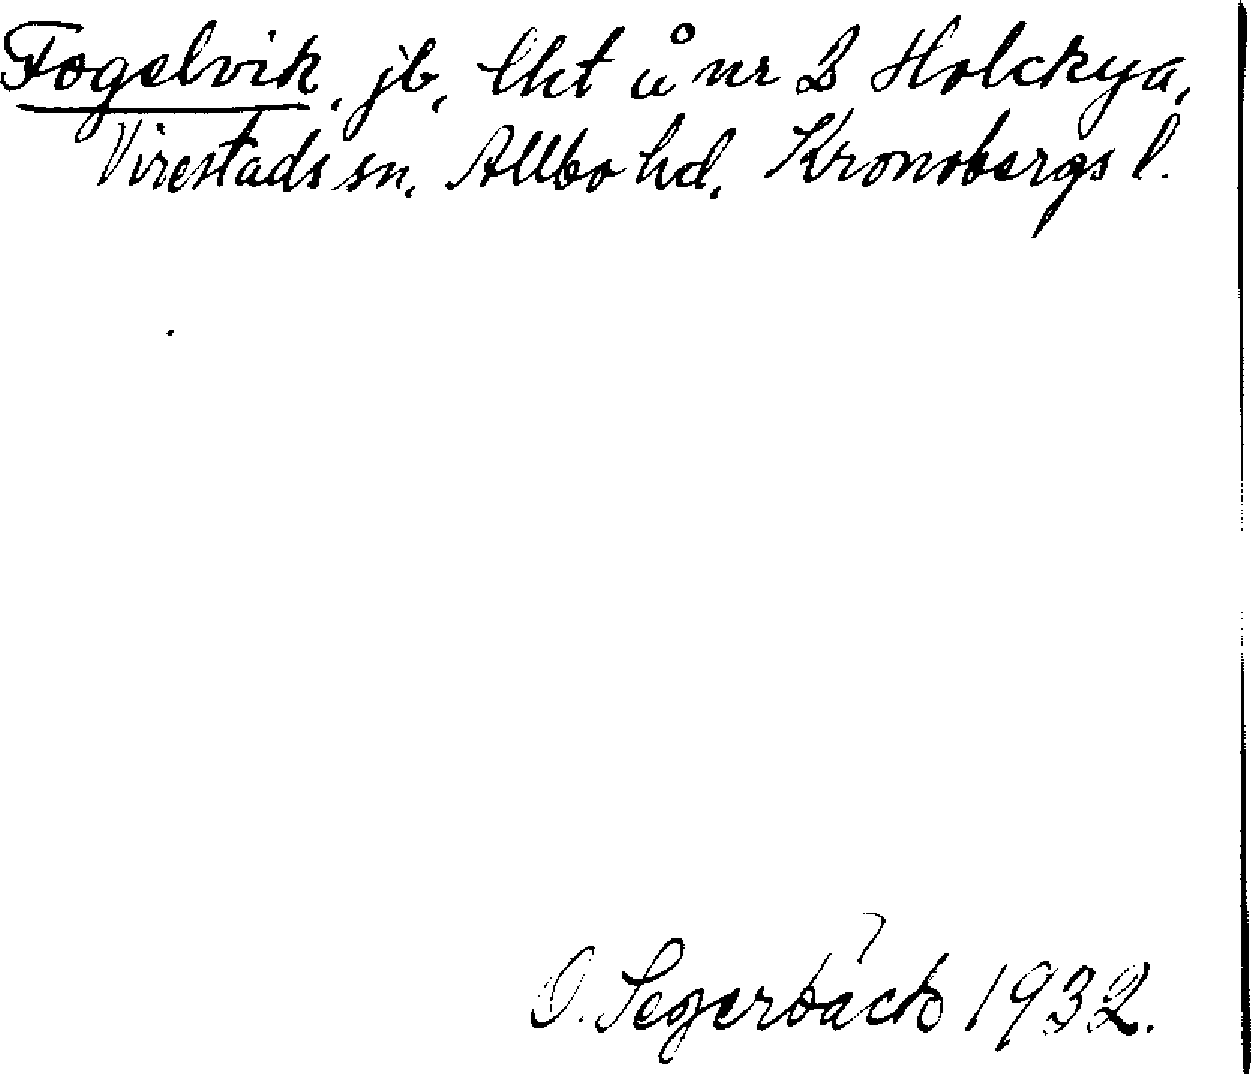 Fogelvik, jb, lht å nr 2 Holckya,
Virestads sn, Allbo hd, Kronobergs l.
O. Segerbäck 1932.